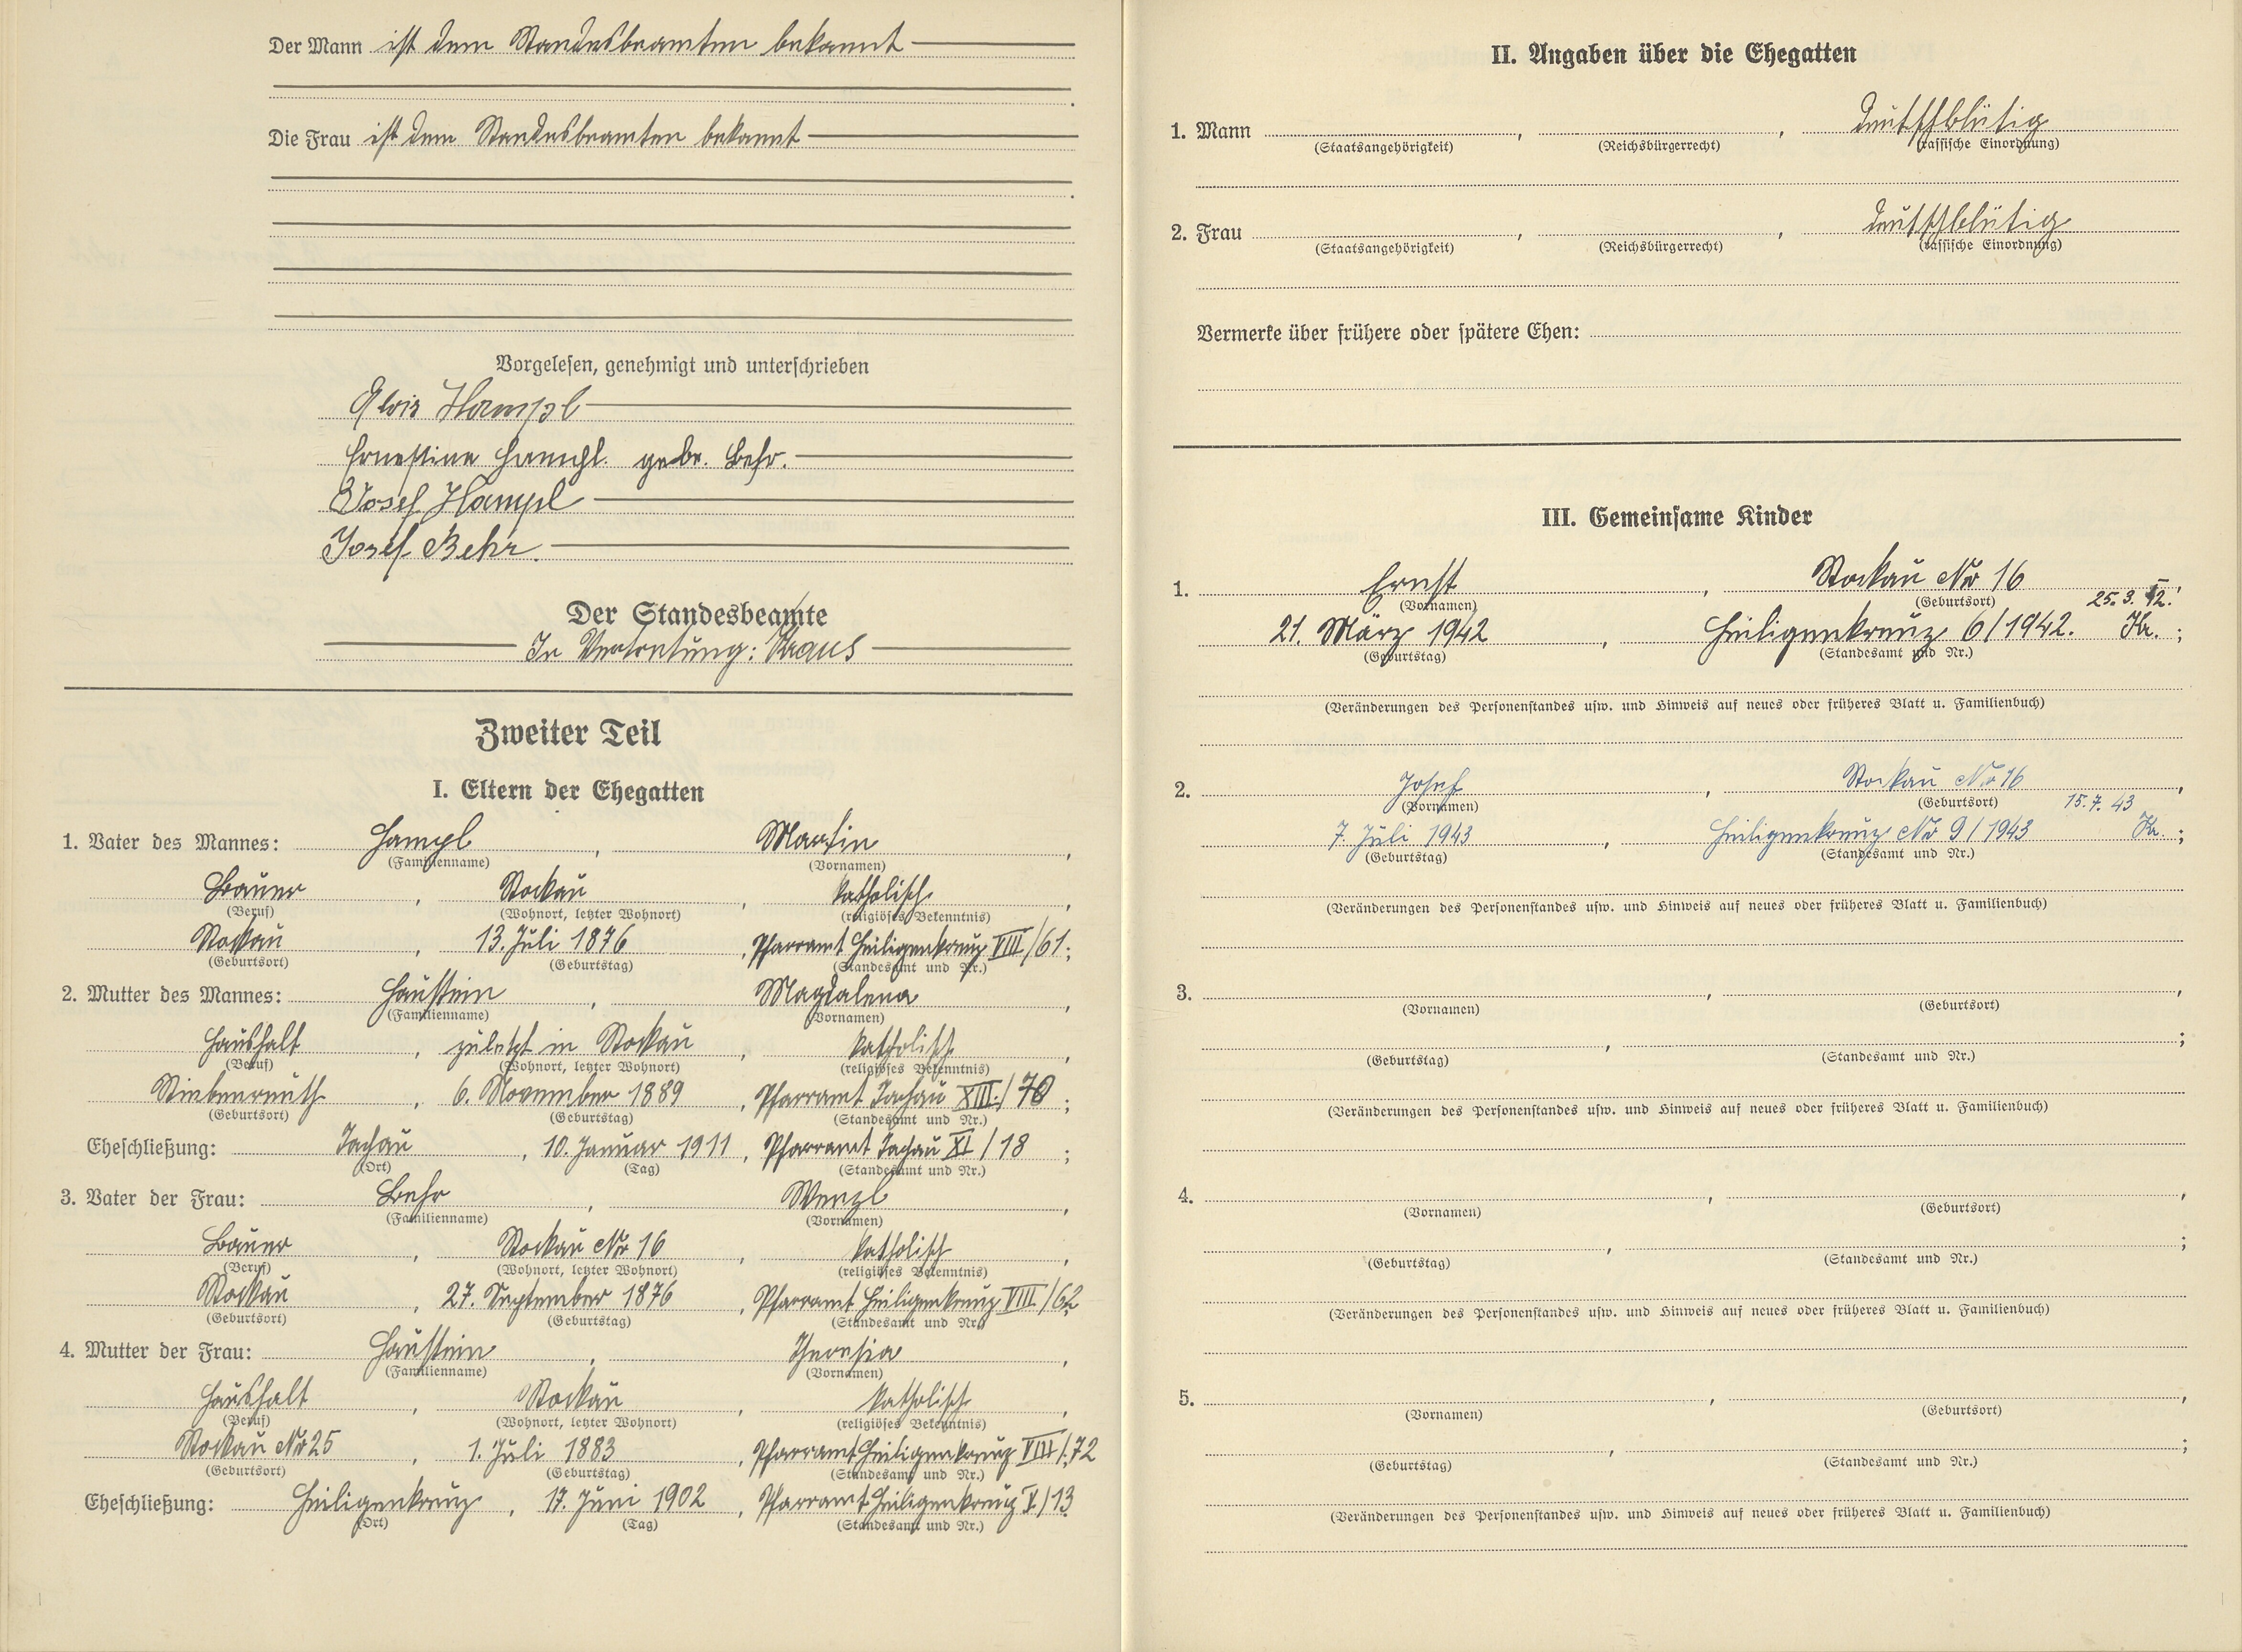 Der Mann ist dem Standesbeamten bekannt
Die Frau ist dem Standesbeamten bekannt
Vorgelesen, genehmigt und unterschrieben
Alois Hampl
Ernestine Hampl. gebr. Behr.
Josef Hampl
Josef Behr.
Der Standesbeamte
In Vertretung: Kraus
Zweiter Teil
I. Eltern der Ehegatten
1. Vater des Mannes: Hampl, Martin,
(Familienname) (Vornamen)
Bauer, Stockau, katholisch,
(Beruf) (Wohnort, letzter Wohnort) (religiöses Bekenntnis)
Stockau, 13. Juli 1876, Pfarramt Heiligenkreuz VIII/61;
(Geburtsort) (Geburtstag) (Standesamt und Nr.)
2. Mutter des Mannes: Haustein, Magdalena,
(Familienname) (Vornamen)
Haushalt, zuletzt in Stockau, katholisch,
(Beruf) (Wohnort, letzter Wohnort) (religiöses Bekenntnis)
Stiebenreuth, 6. November 1889, Pfarramt Tachau XIII./70;
(Geburtsort) (Geburtstag) (Standesamt und Nr.)
Eheschließung: Tachau, 10. Januar 1911, Pfarramt Tachau XI/18;
(Ort) (Tag) (Standesamt und Nr.)
3. Vater der Frau: Behr, Wenzl,
(Familienname) (Vornamen)
Bauer, Stockau Nr 16, katholisch,
(Beruf) (Wohnort, letzter Wohnort) (religiöses Bekenntnis)
Stockau, 27. September 1876, Pfarramt Heiligenkreuz VIII/62;
(Geburtsort) (Geburtstag) (Standesamt und Nr.)
4. Mutter der Frau: Haustein, Theresia,
(Familienname) (Vornamen)
Haushalt, Stockau, katholisch,
(Beruf) (Wohnort, letzter Wohnort) (religiöses Bekenntnis)
Stockau Nr 25, 1. Juli 1883, Pfarramt Heiligenkreuz VIII/72;
(Geburtsort) (Geburtstag) (Standesamt und Nr.)
Eheschließung: Heiligenkreuz, 17. Juni 1902, Pfarramt Heiligenkreuz V/13
(Ort) (Tag) (Standesamt und Nr.)
II. Angaben über die Ehegatten
1. Mann, , deutschblütig
(Staatsangehörigkeit) (Reichsbürgerrecht) (rassische Einordnung)
2. Frau, , deutschblütig
(Staatsangehörigkeit) (Reichsbürgerrecht) (rassische Einordnung)
Vermerke über frühere oder spätere Ehen:
III. Gemeinsame Kinder
1. Ernst, Stockau Nr 16,
(Vornamen) (Geburtsort) 25. 3. 42.
21. März 1942, Heiligenkreuz 6/1942. Kr.;
(Geburtstag) (Standesamt und Nr.)
(Veränderungen des Personenstandes usw. und Hinweis auf neues oder früheres Blatt u. Familienbuch)
2. Josef, Stockau Nr 16,
(Vornamen) (Geburtsort) 15. 7. 43
7. Juli 1943, Heiligenkreuz Nr 9/1943 Kr.;
(Geburtstag) (Standesamt und Nr.)
(Veränderungen des Personenstandes usw. und Hinweis auf neues oder früheres Blatt u. Familienbuch)
3. , ,
(Vornamen) (Geburtsort)
;
(Geburtstag) (Standesamt und Nr.)
(Veränderungen des Personenstandes usw. und Hinweis auf neues oder früheres Blatt u. Familienbuch)
4. , ,
(Vornamen) (Geburtsort)
, ;
(Geburtstag) (Standesamt und Nr.)
(Veränderungen des Personenstandes usw. und Hinweis auf neues oder früheres Blatt u. Familienbuch)
5. , ,
(Vornamen) (Geburtsort)
, ;
(Geburtstag) (Standesamt und Nr.)
(Veränderungen des Personenstandes usw. und Hinweis auf neues oder früheres Blatt u. Familienbuch)